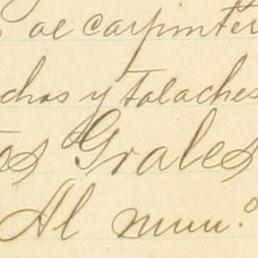 de carpinter
chas y talaches
os Grales
Al mun.º